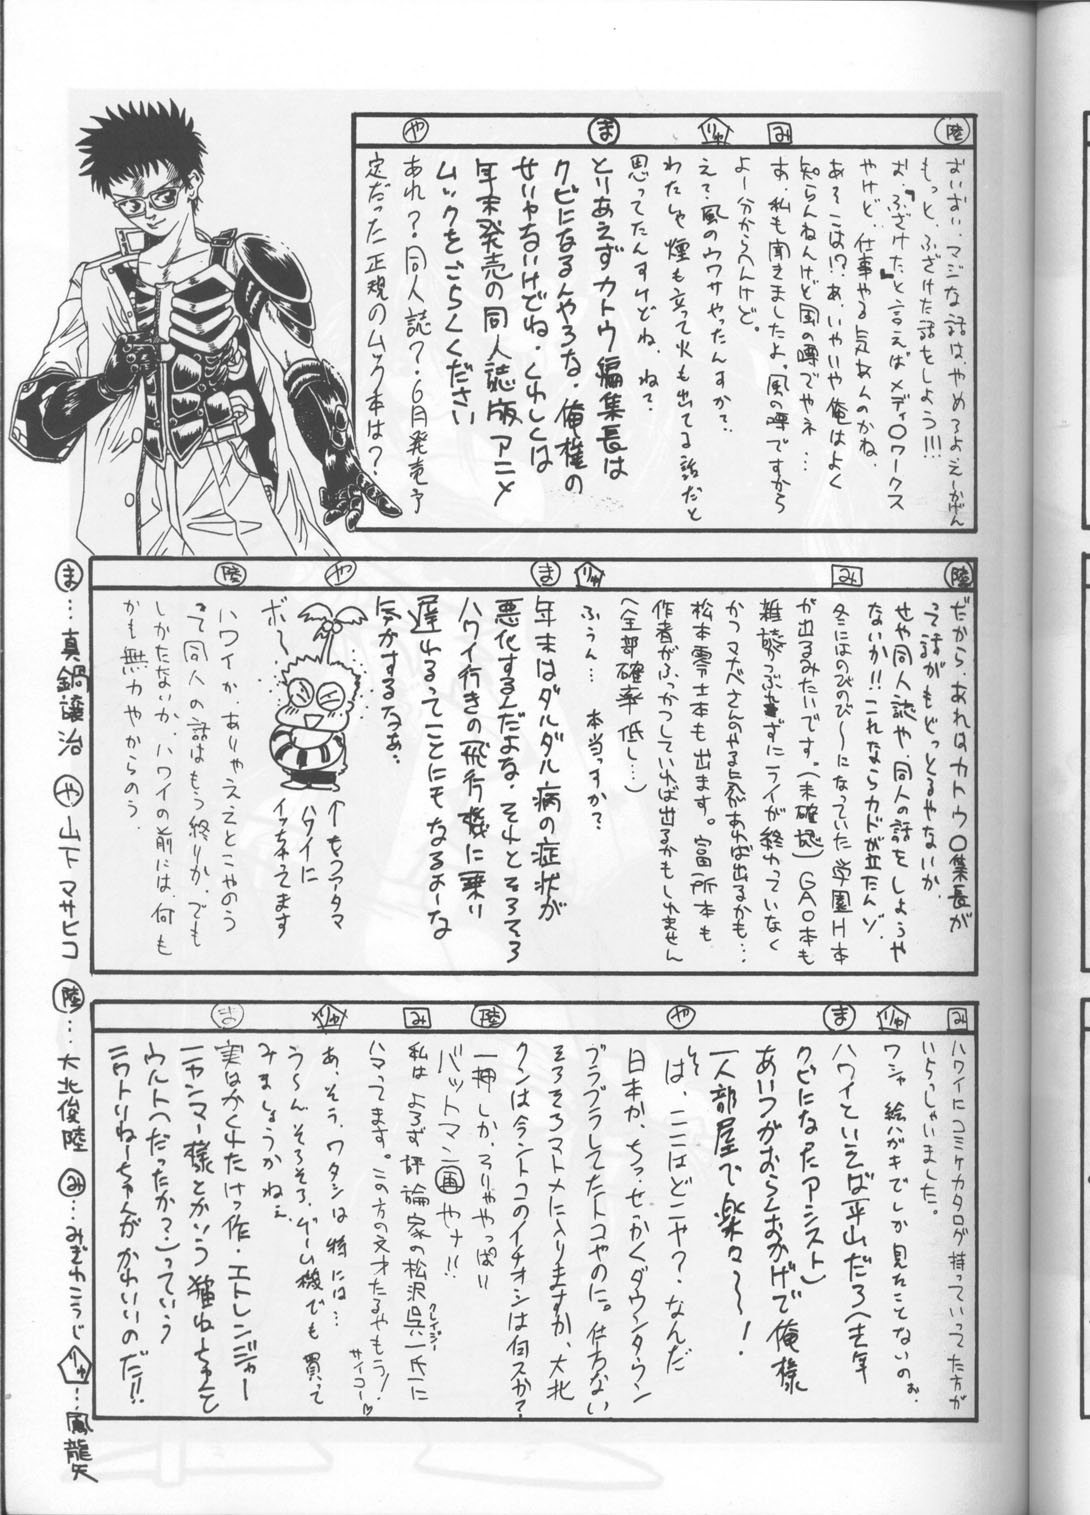 陸
おいおい、マジな話はやめろよえーかげん
もっと、ふざけた話をしよう!!!
お、「ふざけた」と言えばメディ○ワークス
やけど、仕事やる気あんのかね、
あそこは!?あ、いやいや俺はよく
知らんねんけど風の噂でやネ…
み
あ、私も聞きましたよ。風の噂ですから
よー分からんけど。
りゅ
え?風のウワサやったんすか?
わたしゃ煙も立って火も出てる話だと
思ってたんすけどね、ね?
ま
とりあえずカトウ編集長は
クビになるんやろな、俺様の
せいやないけどね、くわしくは
年末発売の同人誌版アニメ
ムックをごらんください
や
あれ?同人誌?6月発売予
定だった正規のムック本は?
陸
だから、あれはカトウ○集長が
って話がもどっとるやないか、
せや同人誌や、同人の話をしようや
ないか!!これならカドが立たんゾ、
み
冬にはのびのび〜になっていた学園H本
が出るみたいです。(未確認)GAO本も
雑誌つぶれずにライが終わっていなく
かつマナベさんのやる気があれば出るかも…
松本零士本も出ます。富所本も
作者がふっかつしていれば出るかもしれません
(全部確率低し…)
りゅ
ふぅん…本当っすか?
ま
年末はダルダル病の症状が
悪化するんだよな、それとそろそろ
ハワイ行きの飛行機に乗り
遅れるってことにもなるよーな
気がするなぁ、
や
ボ〜
←もうアタマ
ハワイに
イッちゃってます
陸
ハワイか、ありゃええとこやのう
って同人の話はもう終りか、でも
しかたないか、ハワイの前には、何も
かも無力やからのう、
み
ハワイにコミケカタログ持っていってた方が
いらっしゃいました。
りゅ
ワシャ絵ハガキでしか見たことないのぉ、
ま
ハワイといえば平山だろ(去年
クビになったアシスト)
あいつがおらんおかげで俺様
一人部屋で楽々〜〜!
や
は、ここはどこや?、なんだ
日本か、ちっ、せっかくダウンタウン
ブラブラしてたトコやのに。仕方ない
そろそろマトメに入りますか、大北
クンは今んトコのイチオシは何スか?
陸
一押しか、そりゃやっぱ!!
バットマン画やナ!!
み
私はよろず評論家の松沢呉一氏に
クレイジー
ハマってます。この方の文才たるやもう!
サイコー♡
りゅ
あ、そう、ワタシは特には…
う〜ん、そろそろ、ゲーム機でも買って
みましょうかねぇ
ま
実はかくれたけっ作・エトレンジャー
ニャンマー様とかいう猫ねーちゃんと
ウルト(だったか?)っていう
ニワトリねーちゃんがかわいいのだ!!
ま…真鍋譲治 や…山下マサヒコ 陸…大北俊陸 み…みぎわこうじ りゅ…鳳龍矢